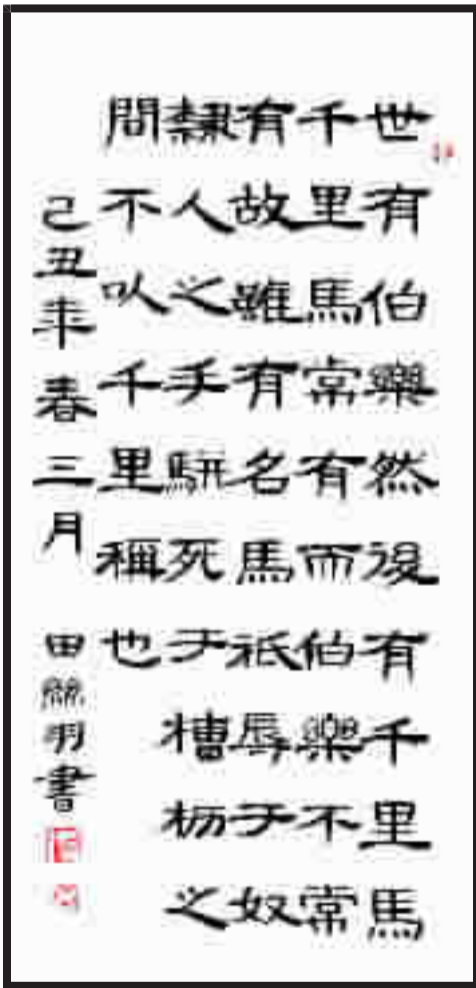 世有伯樂然後有千里馬
千里馬常有而伯樂不常
有故雖有名馬祇辱于奴
隸人之手駢死于槽枥之
問不以千里稱也
己丑年春三月 田羽書